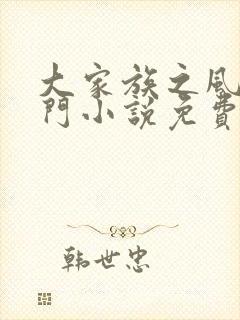 大家族之風
門小說免費
韩世忠